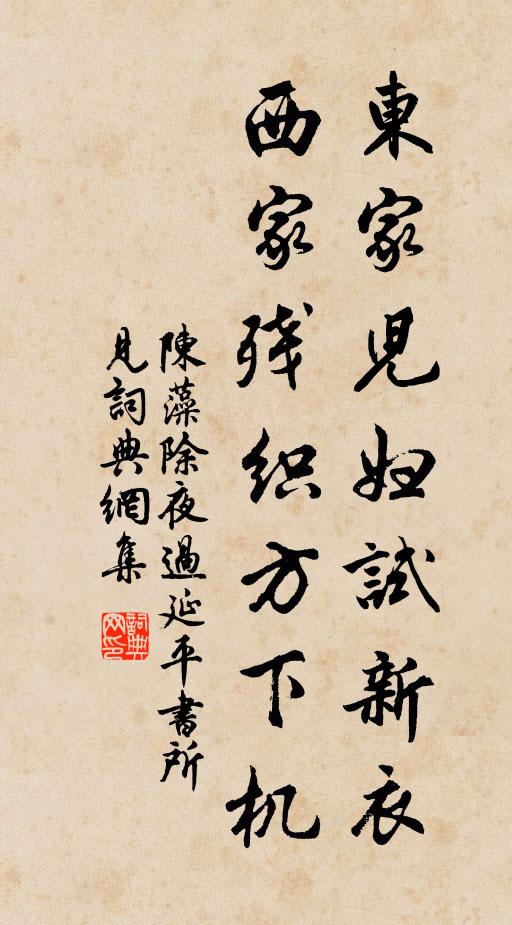 東家児妇試新衣
西家残织方下机
陳藻除夜過延平書所
見詞典網集
詞典
网印